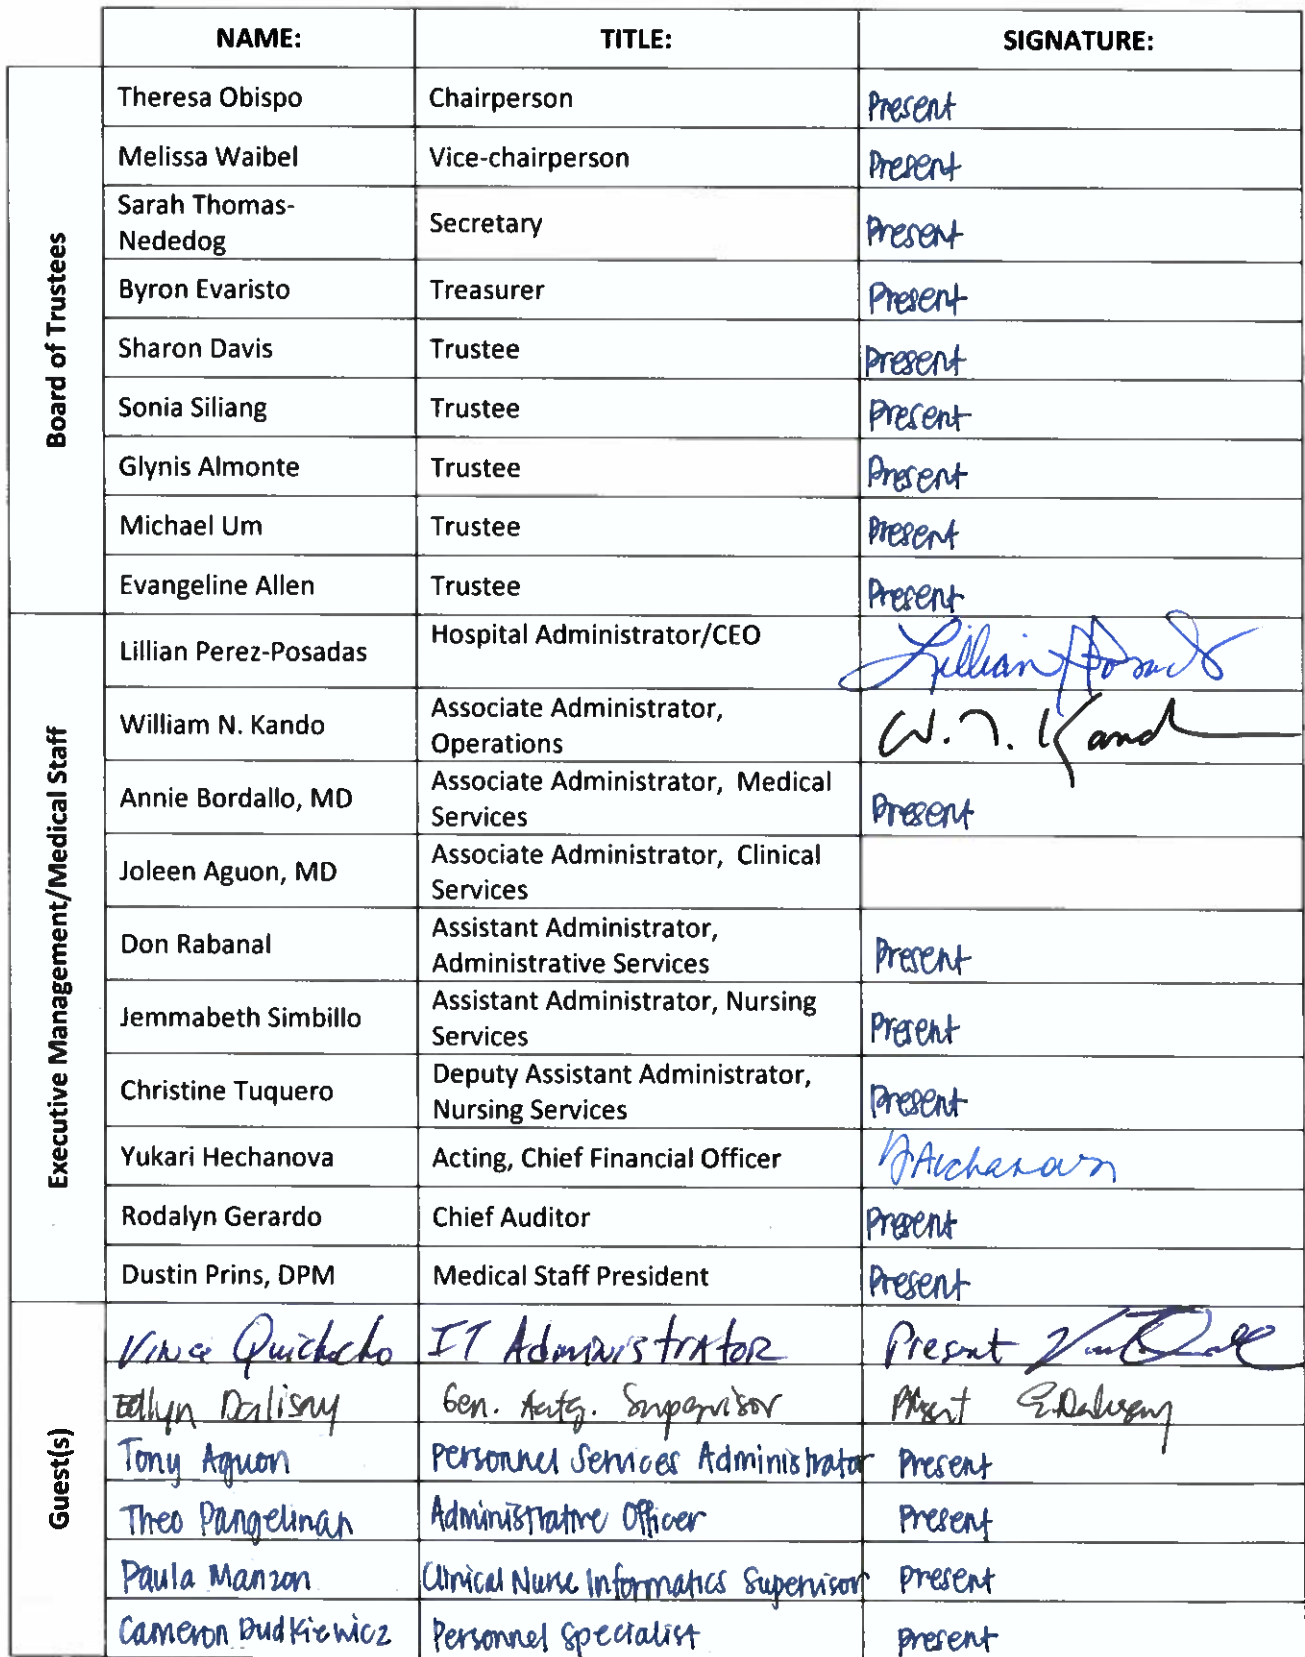 NAME: TITLE: SIGNATURE:
Board of Trustees
Theresa Obispo Chairperson Present
Melissa Waibel Vice-chairperson Present
Sarah Thomas-
Nededog Secretary Present
Byron Evaristo Treasurer Present
Sharon Davis Trustee Present
Sonia Siliang Trustee Present
Glynis Almonte Trustee Present
Michael Um Trustee Present
Evangeline Allen Trustee Present
Executive Management/Medical Staff
Lillian Perez-Posadas Hospital Administrator/CEO Lillian
William N. Kando Associate Administrator,
Operations W. N. Kando
Annie Bordallo, MD Associate Administrator, Medical
Services Present
Joleen Aguon, MD Associate Administrator, Clinical
Services
Don Rabanal Assistant Administrator,
Administrative Services Present
Jemmabeth Simbillo Assistant Administrator, Nursing
Services Present
Christine Tuquero Deputy Assistant Administrator,
Nursing Services Present
Yukari Hechanova Acting, Chief Financial Officer
Rodalyn Gerardo Chief Auditor Present
Dustin Prins, DPM Medical Staff President Present
Guest(s)
Vince Quichocho IT Administrator Present
Edlyn Dalisay Gen. Acctg. Supervisor Present E. Dalisay
Tony Aguon Personnel Services Administrator Present
Theo Pangelinan Administrative Officer Present
Paula Manzon Clinical Nurse Informatics Supervisor present
Cameron Dudkiewicz Personnel Specialist present